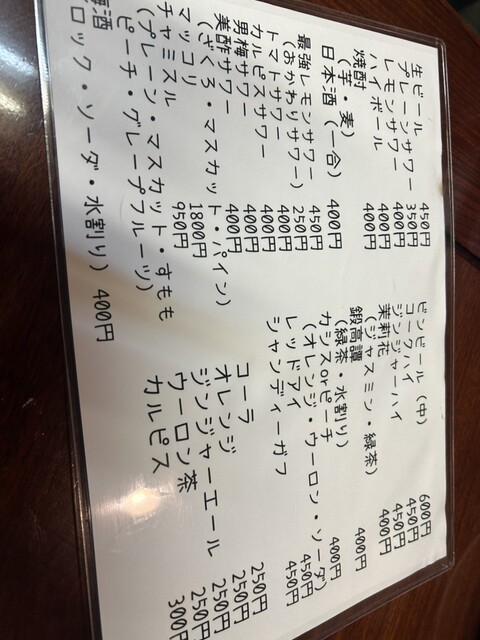 生ビール 450円
プレーンサワー 350円
レモンサワー 400円
ハイボール 400円
焼酎(芋・麦) 400円
日本酒(一合) 400円
最強レモンサワー 450円
(おかわりサワー) 250円
トマトサワー 400円
カルピスサワー 400円
男梅サワー 400円
美酢サワー 400円
(ざくろ・マスカット・パイン)
マッコリ 1800円
チャミスル 950円
(プレーン・マスカット・すもも
ピーチ・グレープフルーツ)
梅酒
(ロック・ソーダ・水割り) 400円
ビンビール(中) 600円
コークハイ 450円
ジンジャーハイ 450円
茉莉花 400円
(ジャスミン・緑茶)
鍛高譚 400円
(緑茶・水割り)
カシスorピーチ 400円
(オレンジ・ウーロン・ソーダ)
レッドアイ 450円
シャンディーガフ 450円
コーラ 250円
オレンジ 250円
ジンジャーエール 250円
ウーロン茶 250円
カルピス 300円